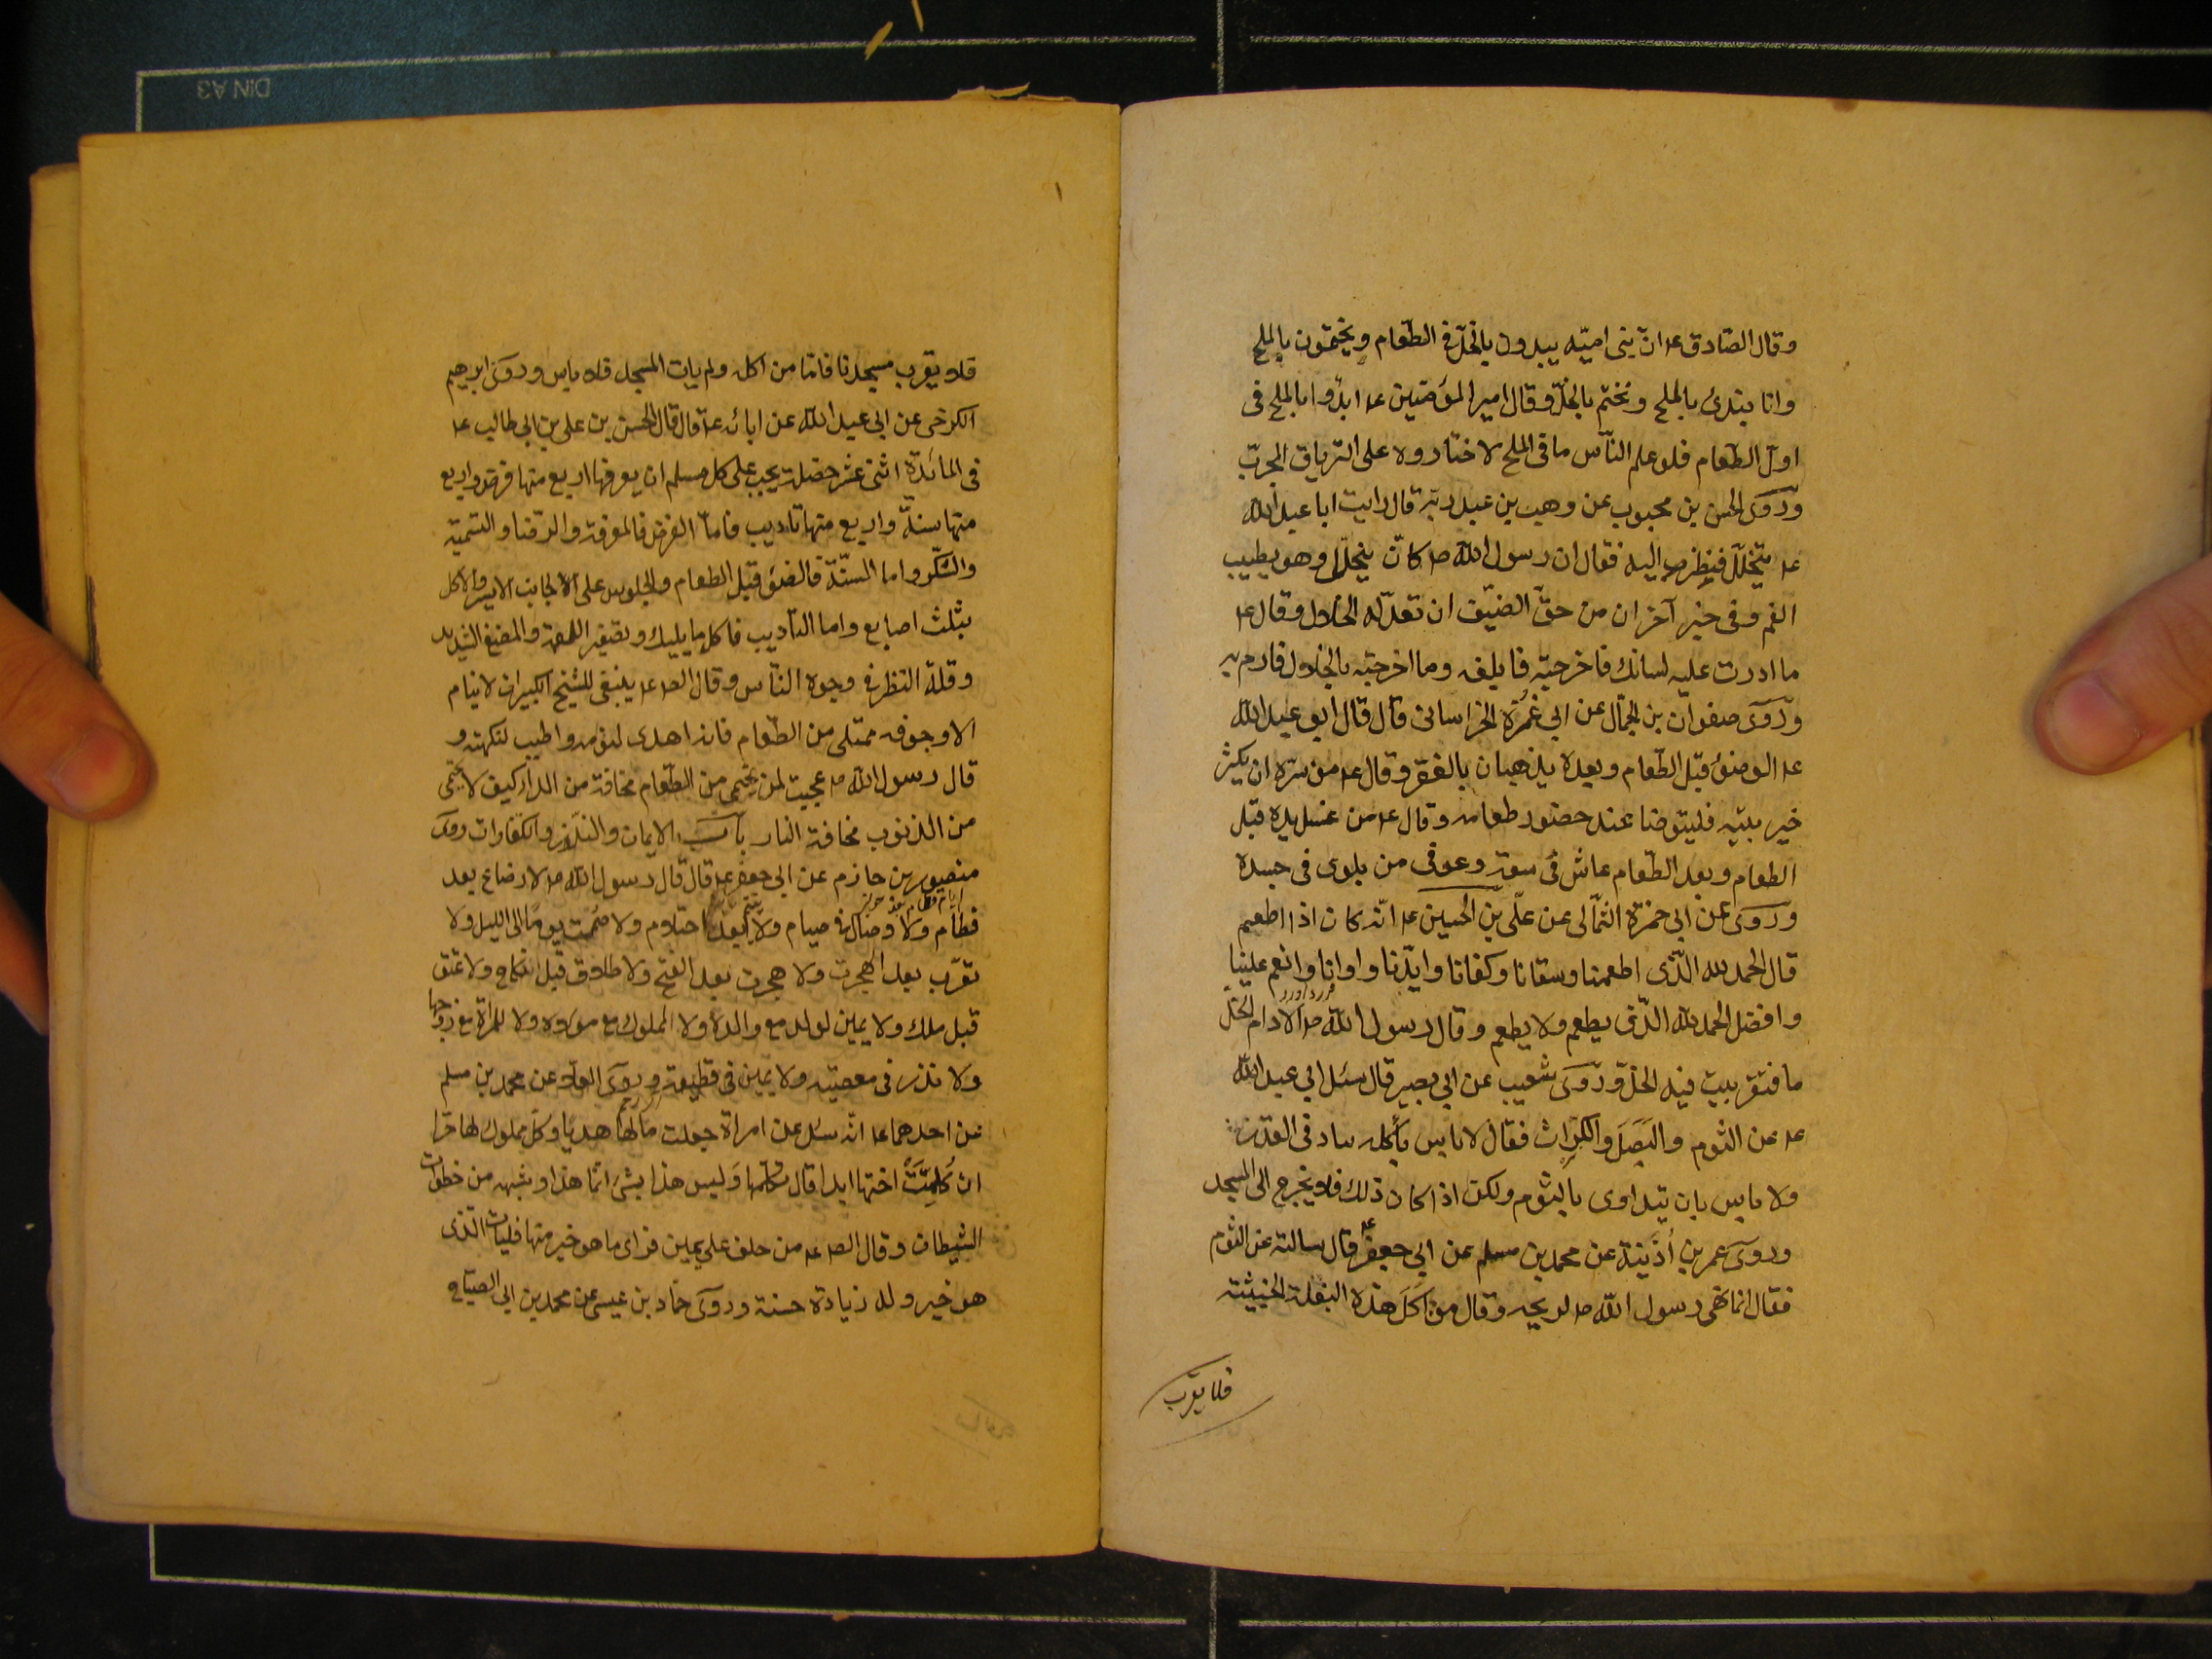 وقال الصّادق عہ انّ بنى اميّه يبدون بالخلّ فى الطّعام ويختمون بالملح
وانا نبتدئ بالملح ونختم بالخلّ وقال امير المؤمنين عہ ابدؤا بالملح فى
اوّل الطّعام فلو علم النّاس ما فى الملح لاختاروه على الترياق المجرّب
وروى الحسن بن محبوب عن وهب بن عبد ربّه قال رايت ابا عبد اللّه
عہ يتخلّل فنظرت اليه فقال ان رسول اللّه ص كان يتخلّل وهو يطيب
الفم وفى خبر آخر ان من حقّ الضيّف ان تعدّ له الخلال وقال عہ
ما ادرت عليه لسانك فاخرجته فابلغه وما اخرجته بالخلال فارم به
وروى صفوان بن الجمّال عن ابى غمرة الخراسانى قال قال ابو عبد اللّه
عہ الوضوء قبل الطّعام وبعده يذهبان بالفقر وقال عہ من سرّه ان يكثر
خير بيته فليتوضا عند حضور طعامه وقال عہ من غسل يده قبل
الطعام وبعد الطّعام عاش فى سعة وعوفى من بلوى فى جسده
وروى عن ابى حمزة الثمّالى عن علّى بن الحسين عہ انّه كان اذا اطعم
قال الحمد لله الّذى اطعمنا وسقانا وكفانا وايّدنا واوانا وانعم علينا
وافضل الحمد للّه الّذى يطعم ولا يطعم وقال رسول اللّه ص الادام الخلّ
ما فتقر بيت فيه الخلّ وروى شعيب عن ابى بصير قال سئل ابى عبد اللّه
عہ عن الثوم والبَصَل والكرّاث فقال لا باس بأكله ساد فى القدر
ولا باس بان يتداوى بالثوم ولكن اذا كان ذلك فلا يخرج الى المسجد
وروى عمر بن اُذَينة عن محمد بن مسلم عن ابى جعفر عہ قال سالته عن الثوم
فقال انما نهى رسول اللّه ص لريحه وقال من اَكَلَ هذه البقلة الخبيثة
فلا يقرب
فلا يقرب مسجدنا فامّا من اكله ولم يات المسجد فلا باس وروى ابرهيم
الكرخى عن ابى عبد اللّه عن ابائه عہ قال قال الحسن بن على بن ابى طالب عہ
فى المائدة اثنى عشر خصلة يجب على كل مسلم ان يعرفها اربع منها فرض واربع
منها سنة واربع منها تاديب فامّا الفرض فالمعرفة والرّضا والتسمية
والشكر واما السنّة فالوضوء قبل الطعام والجلوس على الجانب الايسر والاكل
بثلث اصابع واما التأديب فاكل ما يليك وتصغير اللقمة والمضغ الشديد
وقلة النظر فى وجوه النّاس وقال الصہ عہ ينبغى للشيخ الكبير ان لا ينام
الا وجوفه ممتلى من الطّعام فانه اهدى لنومه واطيب لنكهته و
قال رسول اللّه ص عجبت لمن يحتمى من الطّعام مخافة من الداء كيف لا يحتمى
من الذنوب مخافة النار باب الايمان والنذور والكفارات روى
منصور بن حازم عن ابى جعفر عہ قال قال رسول اللّه ص لا رضاع بعد
فطام ولا وصال فى صيام ولا يتم بعد احتلام ولا صُمت يومًا الى الليل ولا
تعرّب بعد الهجرت ولا هجرت بعد الفتح ولا طلاق قبل النكاح ولا عتق
قبل ملك ولا يمين لولد مع والده ولا المملوك مع مولاه ولا للمراة مع زوجها
ولا نذر فى معصيته ولا يمين فى قطيعة وروى العلاء عن محمد بن مسلم
عن احدهما عہ انّه سئل عن امراة جعلت مالها هديا وكلّ مملوك لها حرا
ان كَلِمَتْ اختها ابدا قال تكلّمها وَليس هذا بشئ انّما هذا وشبهه من خطوات
الشيطان وقال الصہ عہ من حلف على يمين فراى ما هو خير منها فليات الّذى
هو خير وله زيادة حسنة وروى حمّاد بن عيسى عن محمد بن ابى الصباح